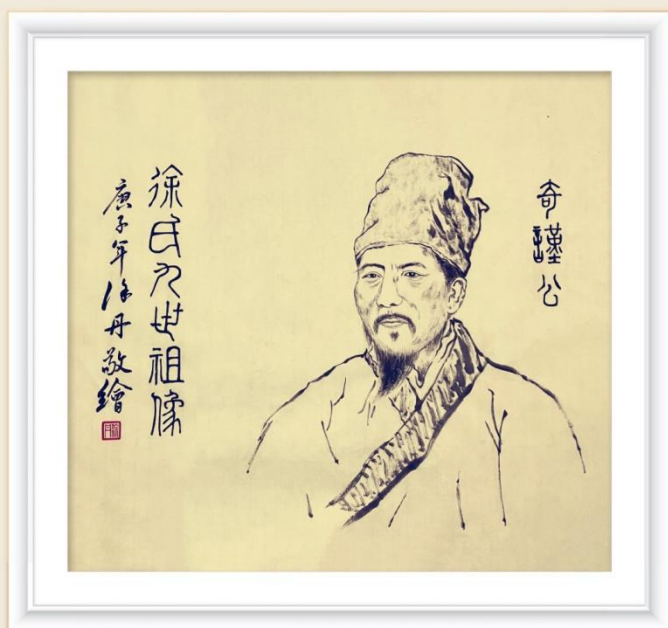 奇謹公
徐氏九世祖像
庚子年徐丹敬繪